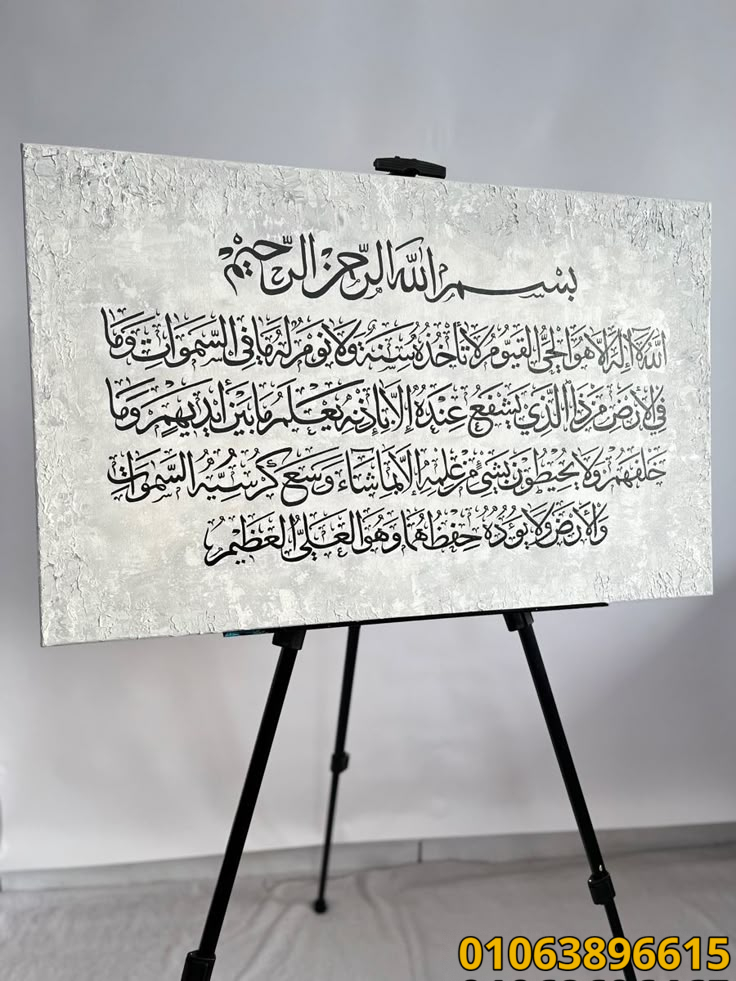 بسم الله الرحمن الرحيم
الله لا إله إلا هو الحي القيوم لا تأخذه سنة ولا نوم له ما في السموات وما
في الأرض من ذا الذي يشفع عنده إلا بإذنه يعلم ما بين أيديهم وما
خلفهم ولا يحيطون بشيء من علمه إلا بما شاء وسع كرسيه السموات
والأرض ولا يؤده حفظهما وهو العلي العظيم
01063896615